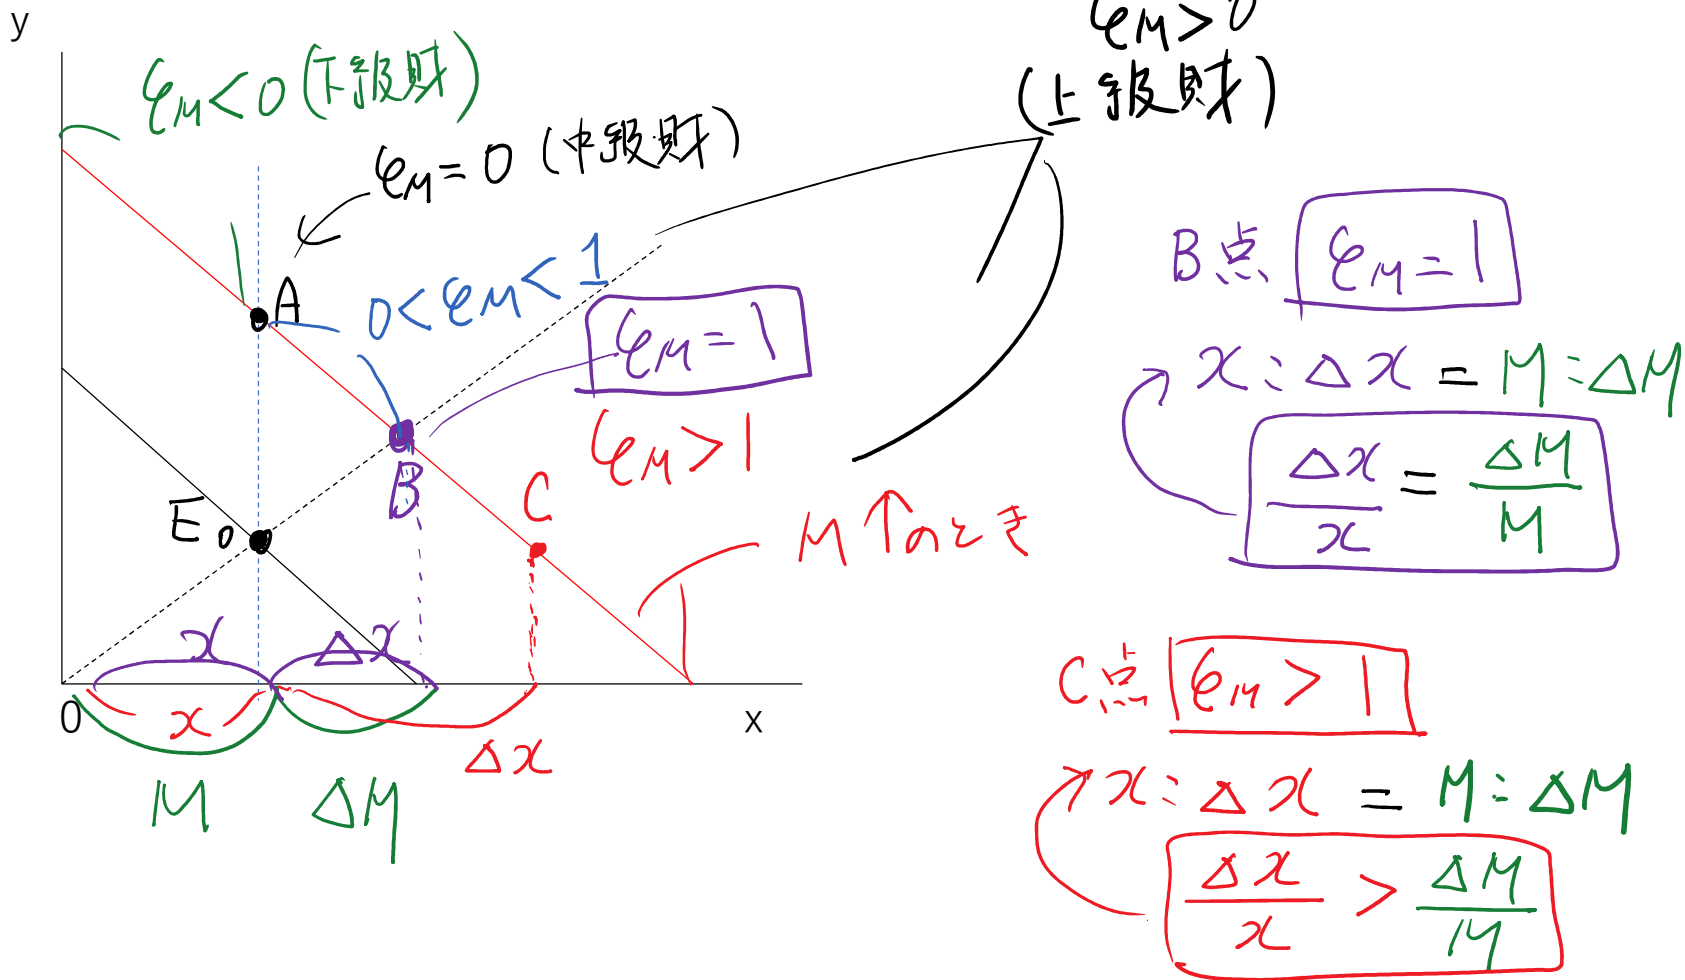 y
εM>0
(上級財)
εM<0(下級財)
εM=0(中級財)
A
0<εM<1
εM=1
εM>1
B
C
E0
M↑のとき
x
Δx
0
x
x
Δx
M
ΔM
B点 εM=1
x:Δx=M:ΔM
Δx/x=ΔM/M
C点 εM>1
x:Δx=M:ΔM
Δx/x>ΔM/M